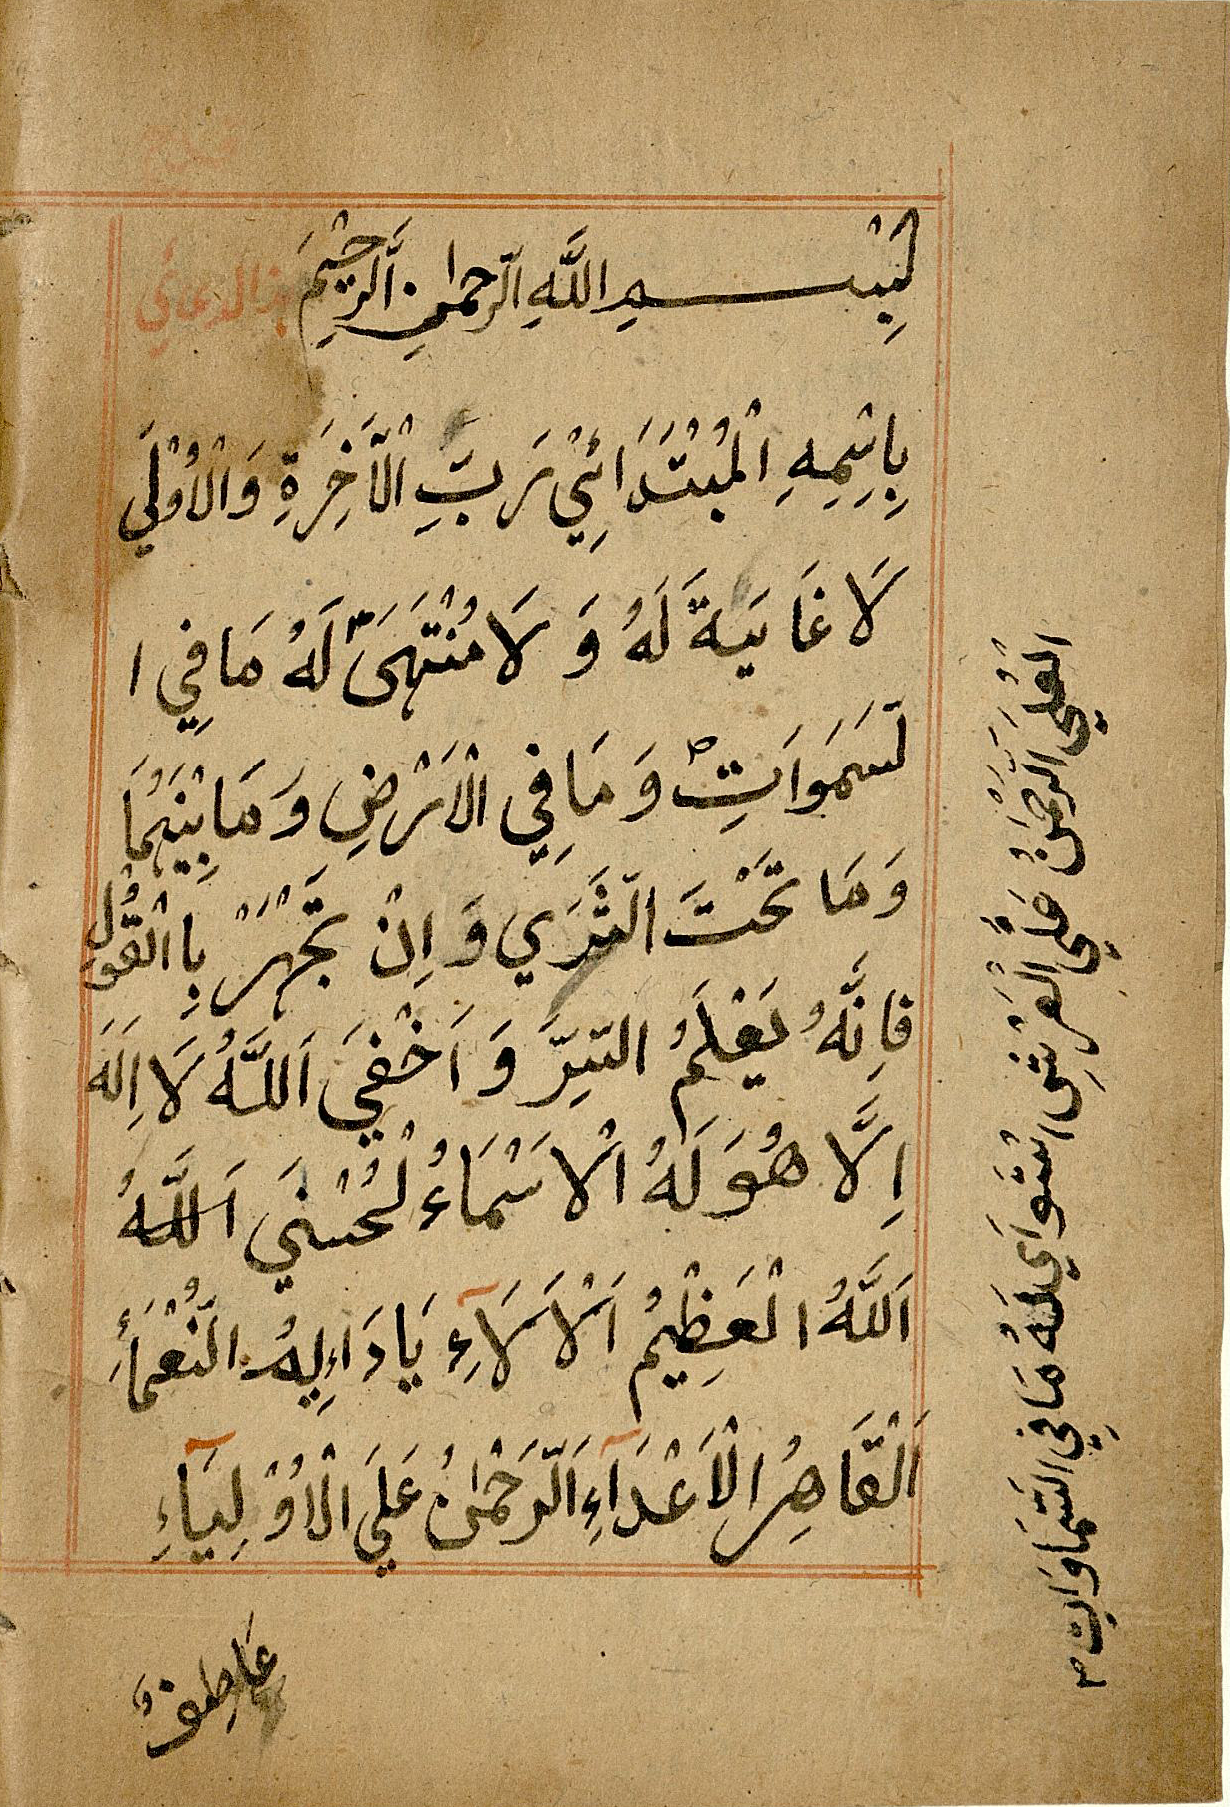 بِسْمِ اللَّهِ الرَّحْمٰنِ الرَّحِيْمِ
بِاِسْمِهِ الْمُبْتَدَائِيْ رَبِّ الْاٰخِرَةِ وَالْاُوْلَي
لَا غَايَةَ لَهُ وَ لَا مُنْتَهَىَ لَهُ مَا فِي ا
لسَمَوَاتِ وَ مَا فِي الْاَرْضِ وَ مَا بَيْنَهُمَا
وَ مَا تَحْتَ الثَّرَي وَ اِنْ تَجْهَرْ بِاالْقَوْلِ
فَاِنَّهُ يَعْلَمُ السِّرَّ وَ اَخْفَي اَللَّهُ لَا اِلَهَ
اِلَّا هُوَ لَهُ اَلْاسْمَاءُ لْحُسْنَي اَللَّهُ
اَللَّهُ الْعَظِيْمُ اَلْالَآءِ يَا دَاءِ النُّعْمَاءِ
اَلْقَاهِرُ الْاَعْدَآءِ اَلرَّحْمٰنُ عَلَي الْاُوْلِيَآءِ
عَاطِفٌ
العُلَي الرَّحْمٰنُ عَلَي الْعَرْشِ اسْتَوَاي لَهُ مَا فِي السَّمَاوَاتِ